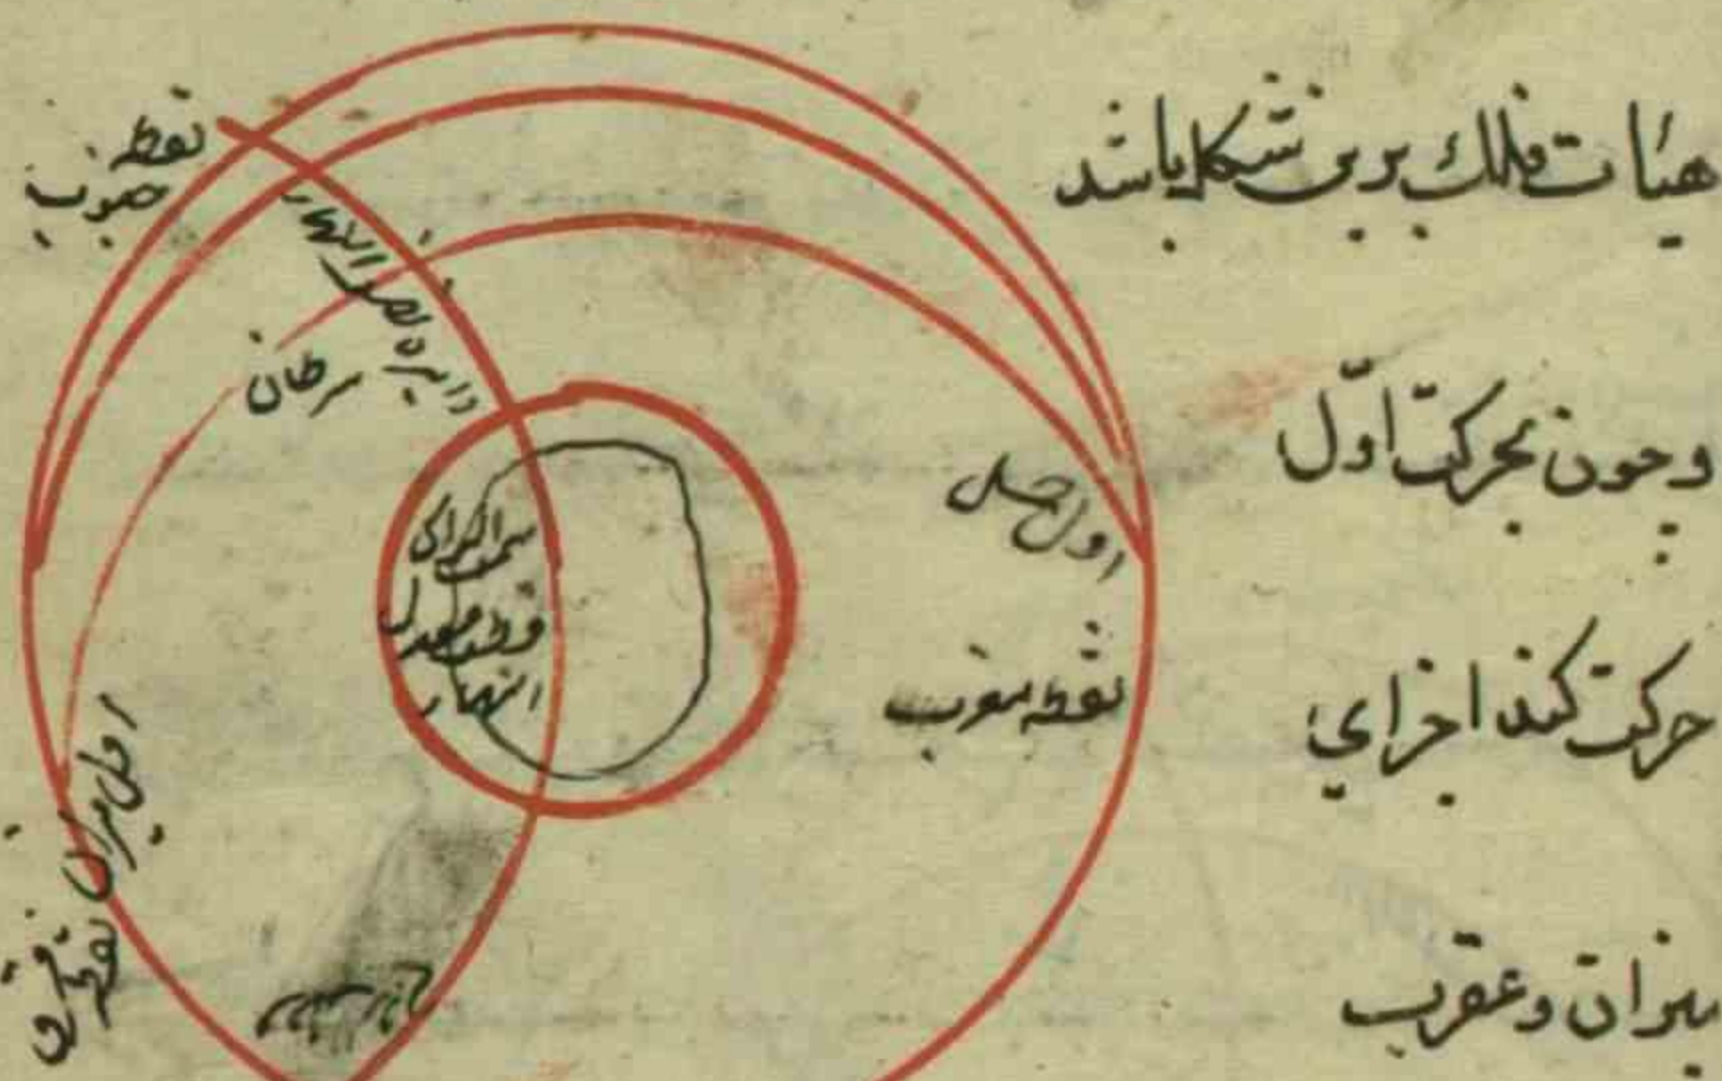 هیات فلک برین شکل باشد
وچون بحرکت اوّل
حرکت کند اجزای
میزان وعقرب
نقطه
جنوب
دایره نصف النهار
سرطان
اول حمل
نقطه مغرب
سمت الراس
قطب معدل
النهار
اول میزان
نقطه مشرق